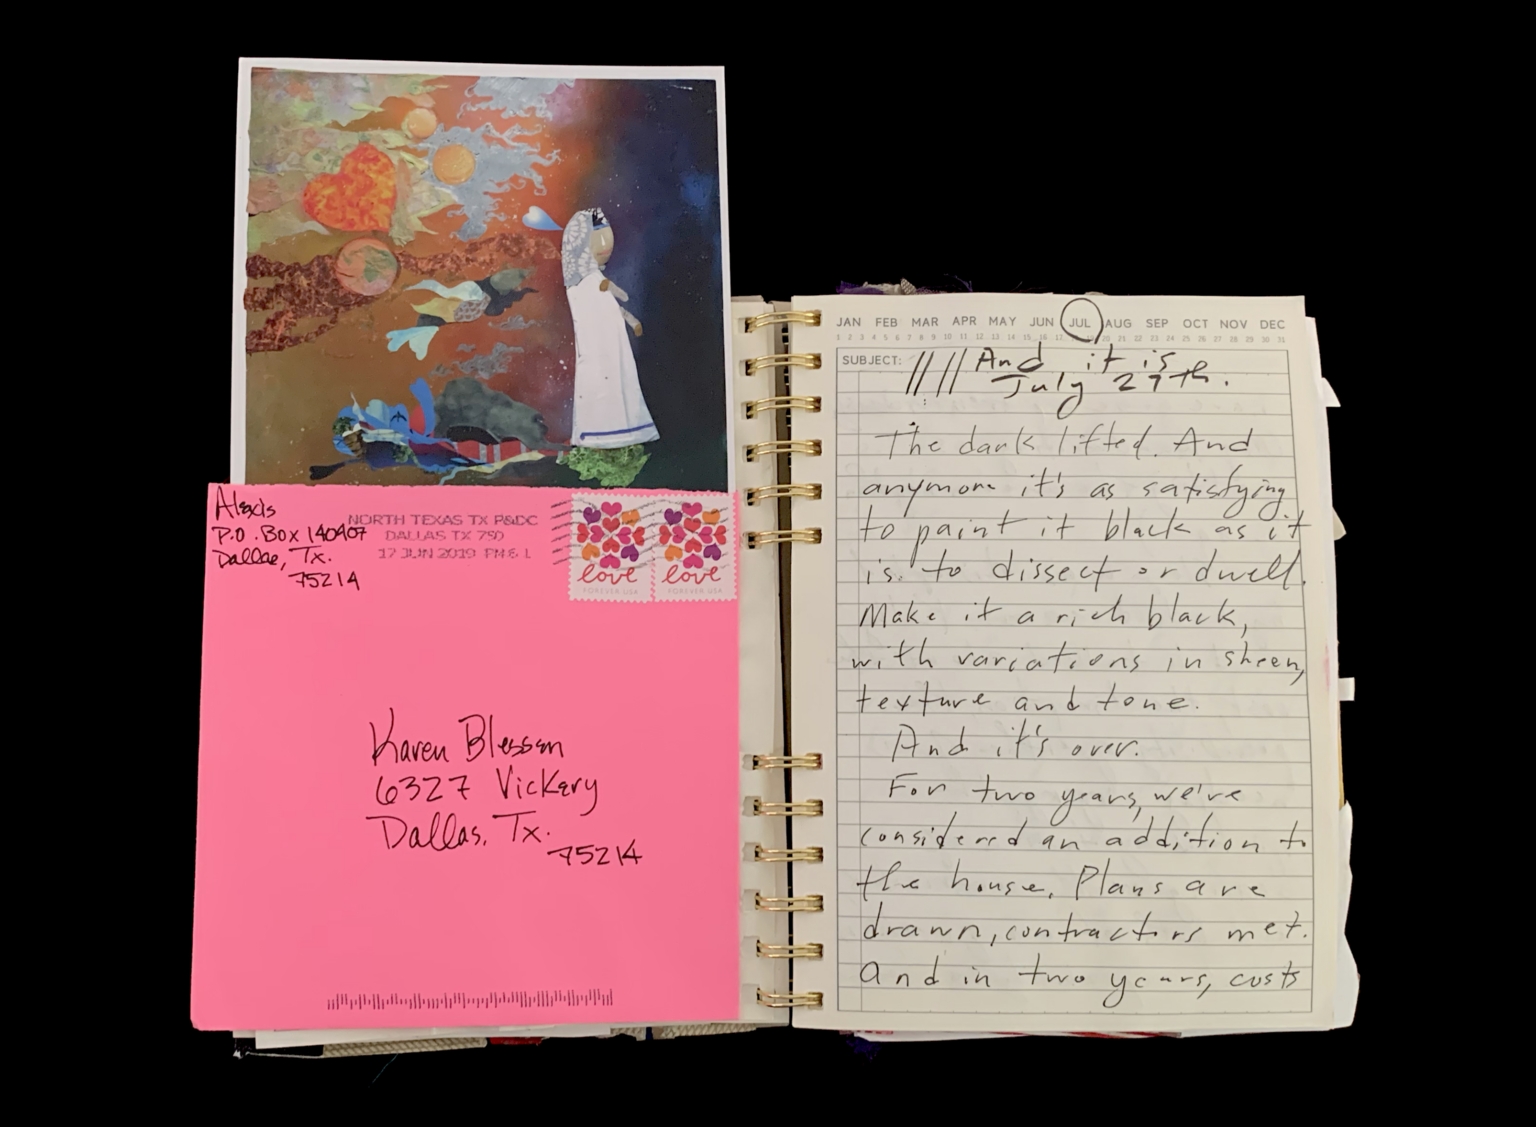 Alexis
P.O. Box 140407
Dallas, Tx.
75214
NORTH TEXAS TX P&DC
DALLAS TX 750
17 JUN 2019 PM 6 L
love
FOREVER USA
love
FOREVER USA
Karen Blessen
6327 Vickery
Dallas, Tx.
75214
JAN FEB MAR APR MAY JUN JUL AUG SEP OCT NOV DEC
1 2 3 4 5 6 7 8 9 10 11 12 13 14 15 16 17 18 19 20 21 22 23 24 25 26 27 28 29 30 31
SUBJECT: And it is
July 27th.
The dark lifted. And
anymore it's as satisfying
to paint it black as it
is to dissect or dwell.
Make it a rich black,
with variations in sheen,
texture and tone.
And it's over.
For two years, we've
considered an addition to
the house. Plans are
drawn, contractors met.
And in two years, costs